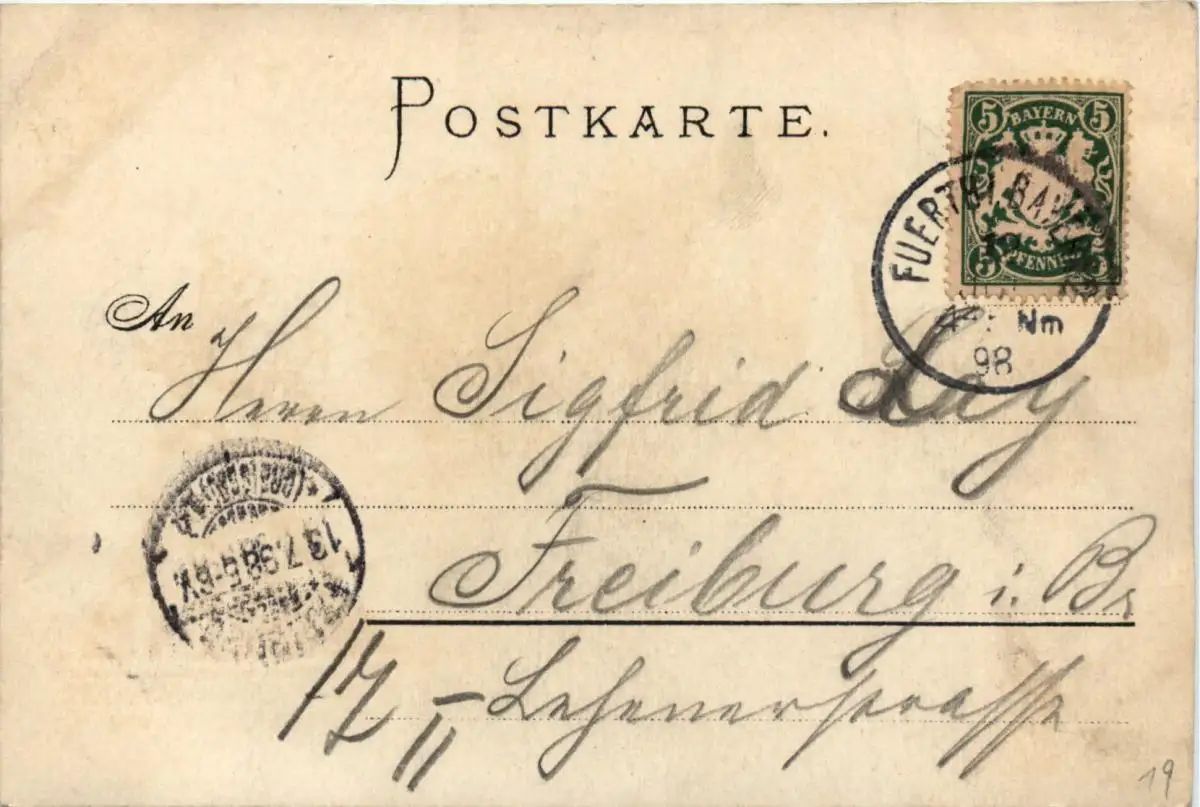 POSTKARTE.
5 BAYERN 5
5 PFENNIG 5
FUERTH I. BAYERN
Nm
98
An Herrn Sigfrid Lay
Freiburg i. Br
13.7.98
17 II – Lehenerstrasse
19